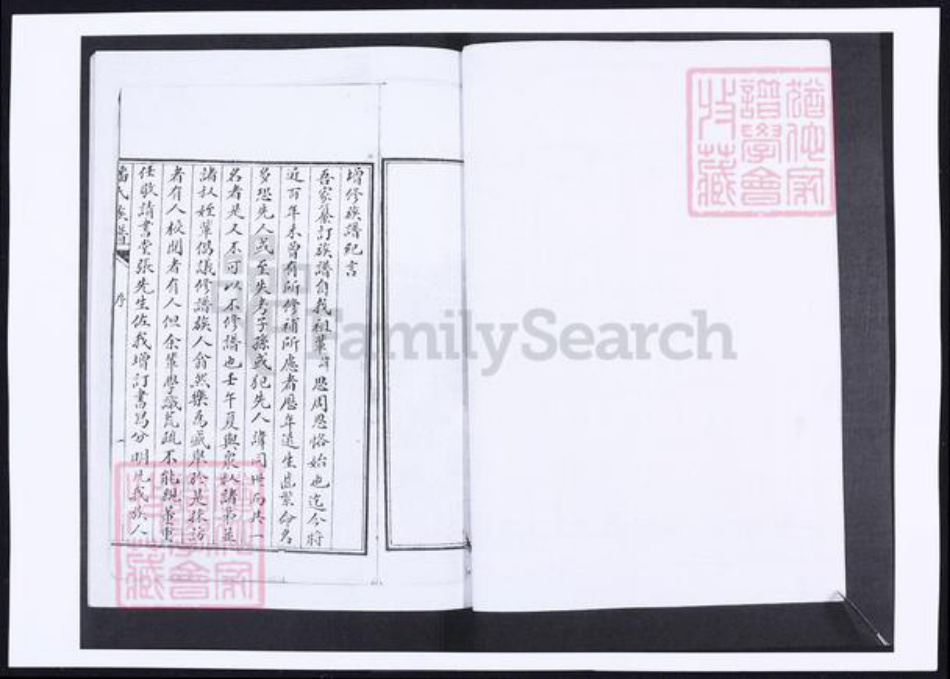 增修族譜紀言
吾家纂訂族譜自我祖輩諱恩周恩恪始也迄今將
近百年未曾有所修補所慮者歷年遠生齒繁命名
多恐先人或至失考子孫或犯先人諱同世而共一
名者是又不可以不修譜也壬午夏與衆叔諸弟並
諸叔姪輩倡議修譜族人翕然樂為盛舉於是採訪
者有人校閱者有人但余輩學識荒疏不能親董重
任敬請書堂張先生佐我增訂書寫分明凡我族人
氏族譜
序
一
FamilySearch
譜學會
收藏